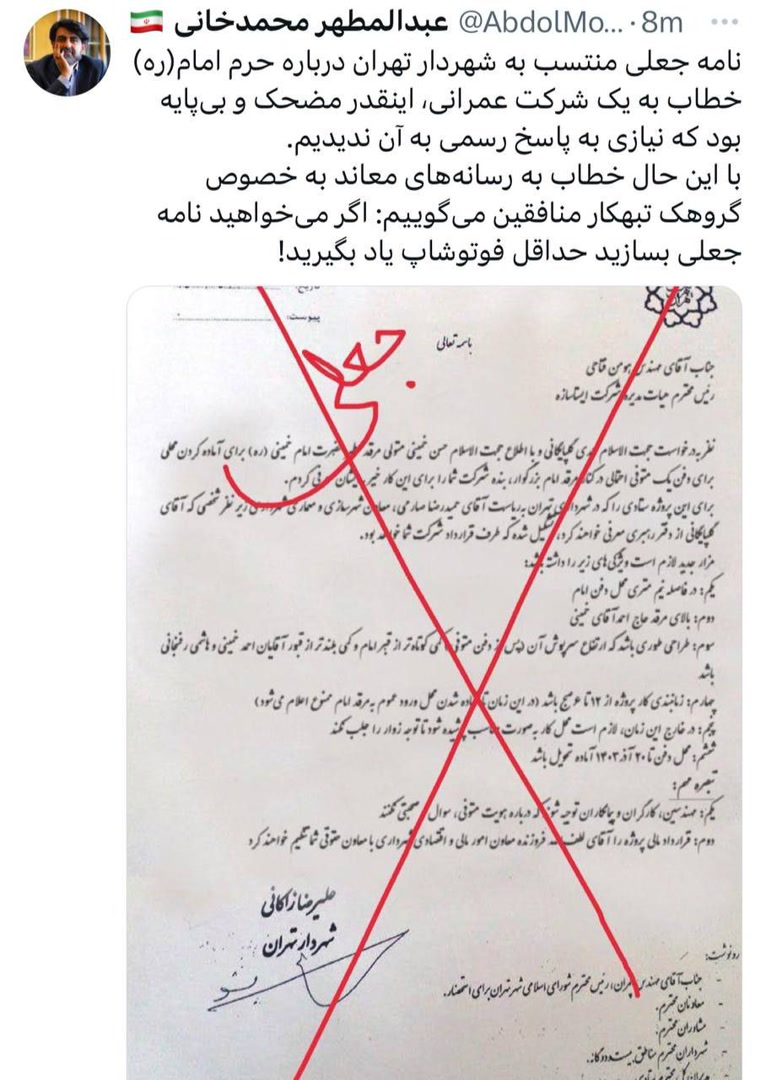 عبدالمطهر محمدخانی 🇮🇷 @AbdolMo... · 8m
نامه جعلی منتسب به شهردار تهران درباره حرم امام(ره)
خطاب به یک شرکت عمرانی، اینقدر مضحک و بی‌پایه
بود که نیازی به پاسخ رسمی به آن ندیدیم.
با این حال خطاب به رسانه‌های معاند به خصوص
گروهک تبهکار منافقین می‌گوییم: اگر می‌خواهید نامه
جعلی بسازید حداقل فوتوشاپ یاد بگیرید!
تاریخ:
پیوست:
باسمه تعالی
جعلی
جناب آقای مهندس هومن فتاحی
رئیس محترم هیات مدیره شرکت ایستاسازه
نظر به درخواست حجت الاسلام گلپایگانی و با اطلاع حجت الاسلام حسن خمینی متولی مرقد حضرت امام خمینی (ره) برای آماده کردن محلی
برای دفن یک متوفی احتمالی در کنار مرقد امام بزرگوار، بنده شرکت شما را برای این کار خیر به ایشان معرفی کردم.
برای این پروژه ستادی را که در شهرداری تهران به ریاست آقای حمیدرضا صارمی، معاون شهرسازی و معماری شهرداری زیر نظر شخصی که آقای
گلپایگانی از دفتر رهبری معرفی خواهند کرد، تشکیل شده که طرف قرارداد شرکت شما خواهد بود.
مزار جدید لازم است ویژگی‌های زیر را داشته باشد:
یکم: در فاصله نیم متری محل دفن امام
دوم: بالای مرقد حاج احمدآقای خمینی
سوم: طراحی طوری باشد که ارتفاع سرپوش آن (پس از دفن متوفی) کمی کوتاه‌تر از قبر امام و کمی بلندتر از قبور آقایان احمد خمینی و هاشمی رفسنجانی
باشد
چهارم: زمانبندی کار پروژه از ۱۲ تا ۶ صبح باشد (در این زمان تا آماده شدن محل ورود عموم به مرقد امام ممنوع اعلام می‌شود)
پنجم: در خارج این زمان، لازم است محل کار به صورت مناسب پوشیده شود تا توجه زوار را جلب نکند
ششم: محل دفن تا ۲۰ آذر ۱۴۰۳ آماده تحویل باشد
تبصره مهم:
یکم: مهندسین، کارگران و پیمانکاران توجیه شوند که درباره هویت متوفی، سوال صحبتی نکنند
دوم: قرارداد مالی پروژه را آقای لطف‌الله فروزنده معاون امور مالی و اقتصادی شهرداری با معاون حقوقی شما تنظیم خواهند کرد
علیرضا زاکانی
شهردار تهران
رونوشت:
- جناب آقای مهندس چمران، رئیس محترم شورای اسلامی شهر تهران برای استحضار.
- معاونان محترم.
- مشاوران محترم.
- شهرداران محترم مناطق بیست و دوگانه.